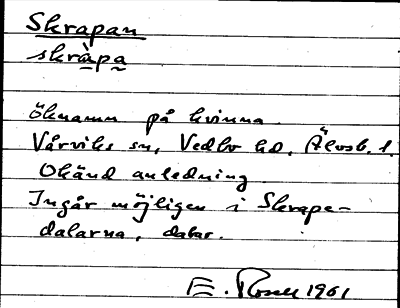 Skrapan
skràpa
öknamn på kvinna.
Vårviks sn, Vedbo hd, Älvsb. l.
Okänd anledning
Ingår möjligen i Skrape-
dalarna, dalar.
E. 1961